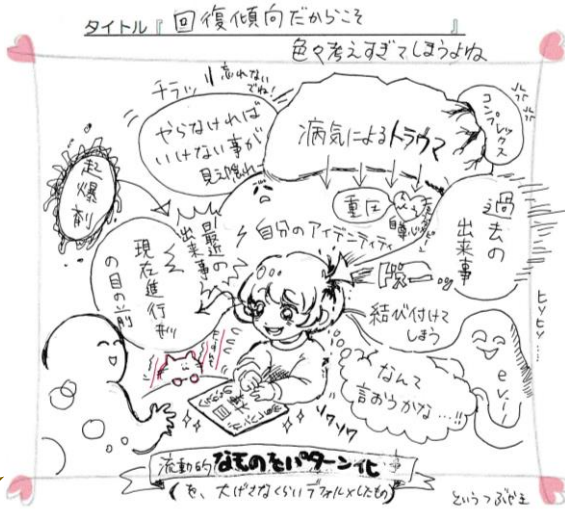 タイトル『回復傾向だからこそ
色々考えすぎてしまうよね』
忘れないでね!
チラッ
やらなければ
いけない事が
見え隠れ
コンプレックス
病気によるトラウマ
起爆剤
重圧
自尊心
過去の
出来事
自分のアイデンティティ
最近の
出来事
現在進行形
の目の前
結び付けて
しまう
ヒソヒソ……
evil
なんて
言おうかな…!!
ソワソワ
流動的なものをパターン化事
(を、大げさなくらいデフォルメしたもの)
というつぶやき